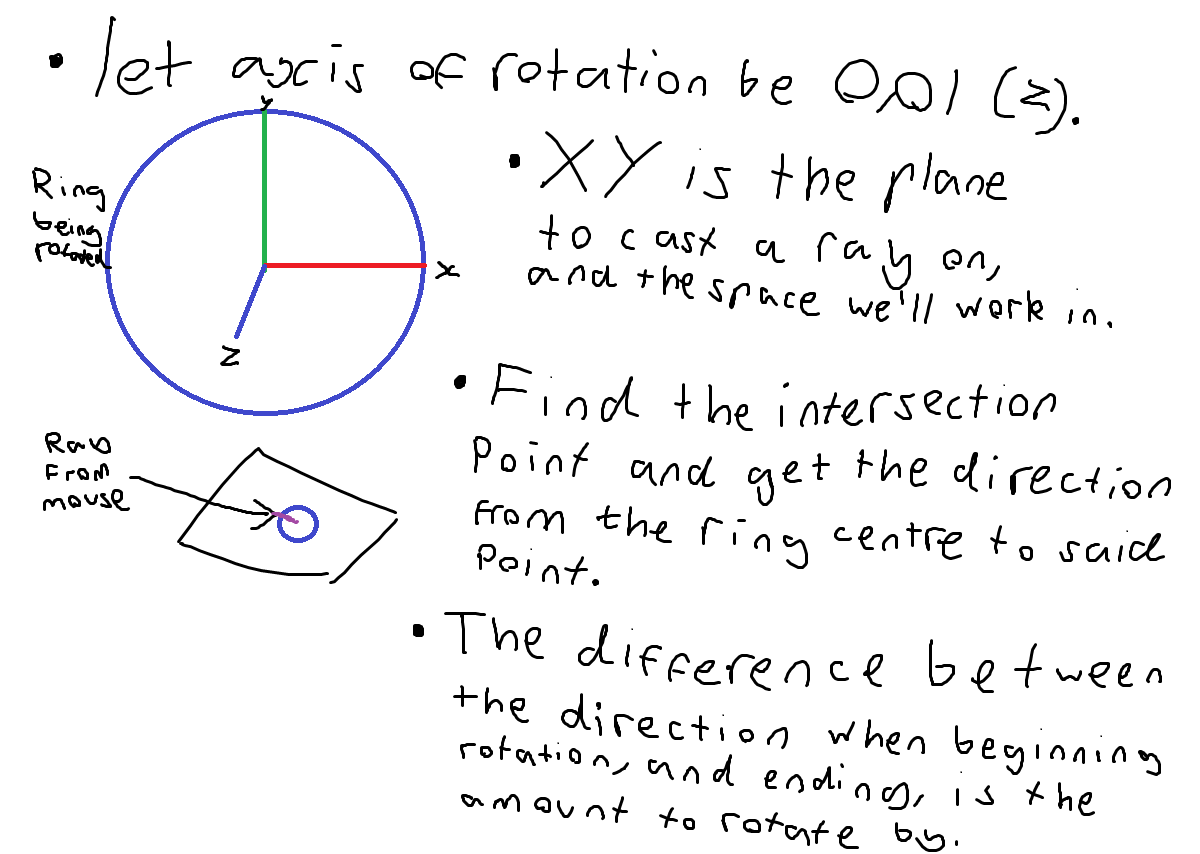 • let axis of rotation be 0,0,1 (z).
y
Ring
being
rotated
x
z
• XY is the plane
to cast a ray on,
and the space we'll work in.
• Find the intersection
point and get the direction
from the ring centre to said
point.
Ray
From
mouse
• The difference between
the direction when beginning
rotation, and ending, is the
amount to rotate by.